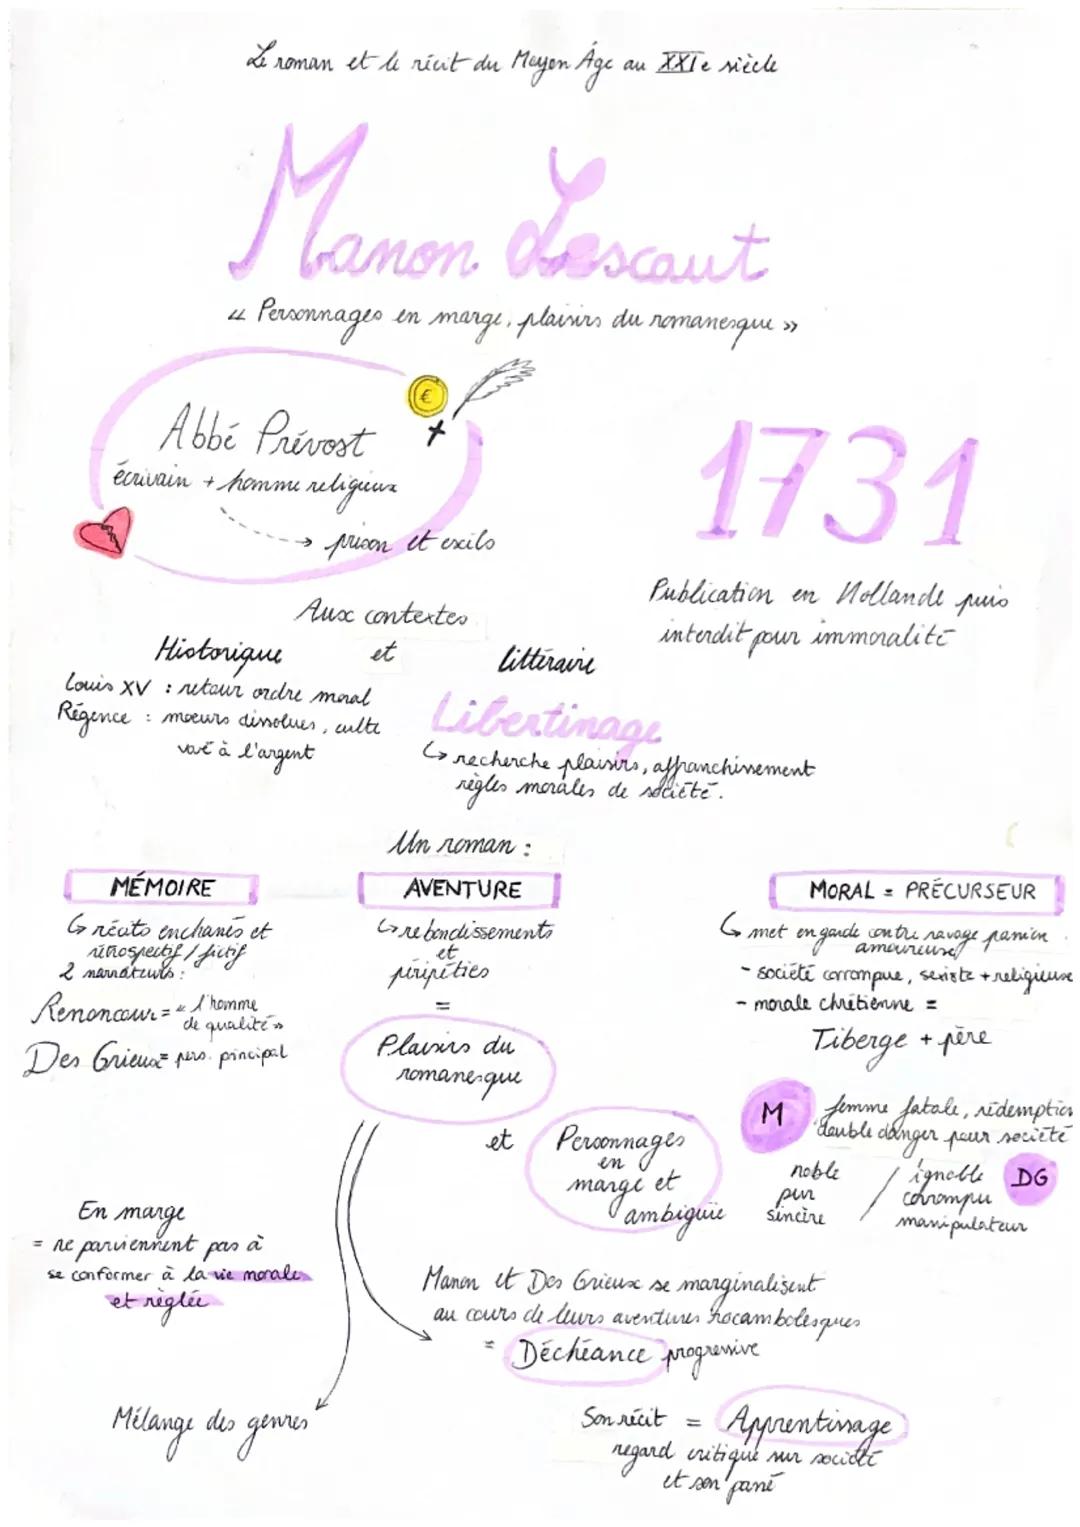 Le roman et le récit du Moyen Âge au XXIe siècle
Manon Lescaut
« Personnages en marge, plaisirs du romanesque »
€
Abbé Prévost
écrivain + homme religieux
→ prison et exils
1731
Publication en Hollande puis
interdit pour immoralité
Aux contextes
Historique et littéraire
Louis XV : retour ordre moral
Régence : moeurs dissolues, culte
voué à l'argent
Libertinage
↳ recherche plaisirs, affranchissement
règles morales de société.
Un roman :
MÉMOIRE
↳ récits enchanés et
rétrospectif / fictif
2 narrateurs :
Renoncour = « l'homme
de qualité »
Des Grieux = pers. principal
AVENTURE
↳ rebondissements
et
péripéties
=
Plaisirs du
romanesque
et
Personnages
en
marge et
ambiguïe
MORAL = PRÉCURSEUR
↳ met en garde contre ravage passion
amoureuse
- société corrompue, sexiste + religieuse
- morale chrétienne =
Tiberge + père
M
femme fatale, rédemption
double danger pour société
noble / ignoble
pur corrompu
sincère manipulateur
DG
En marge
= ne parviennent pas à
se conformer à la vie morale
et réglée
Manon et Des Grieux se marginalisent
au cours de leurs aventures rocambolesques
= Déchéance progressive
Mélange des genres
Son récit = Apprentissage
regard critique sur société
et son passé